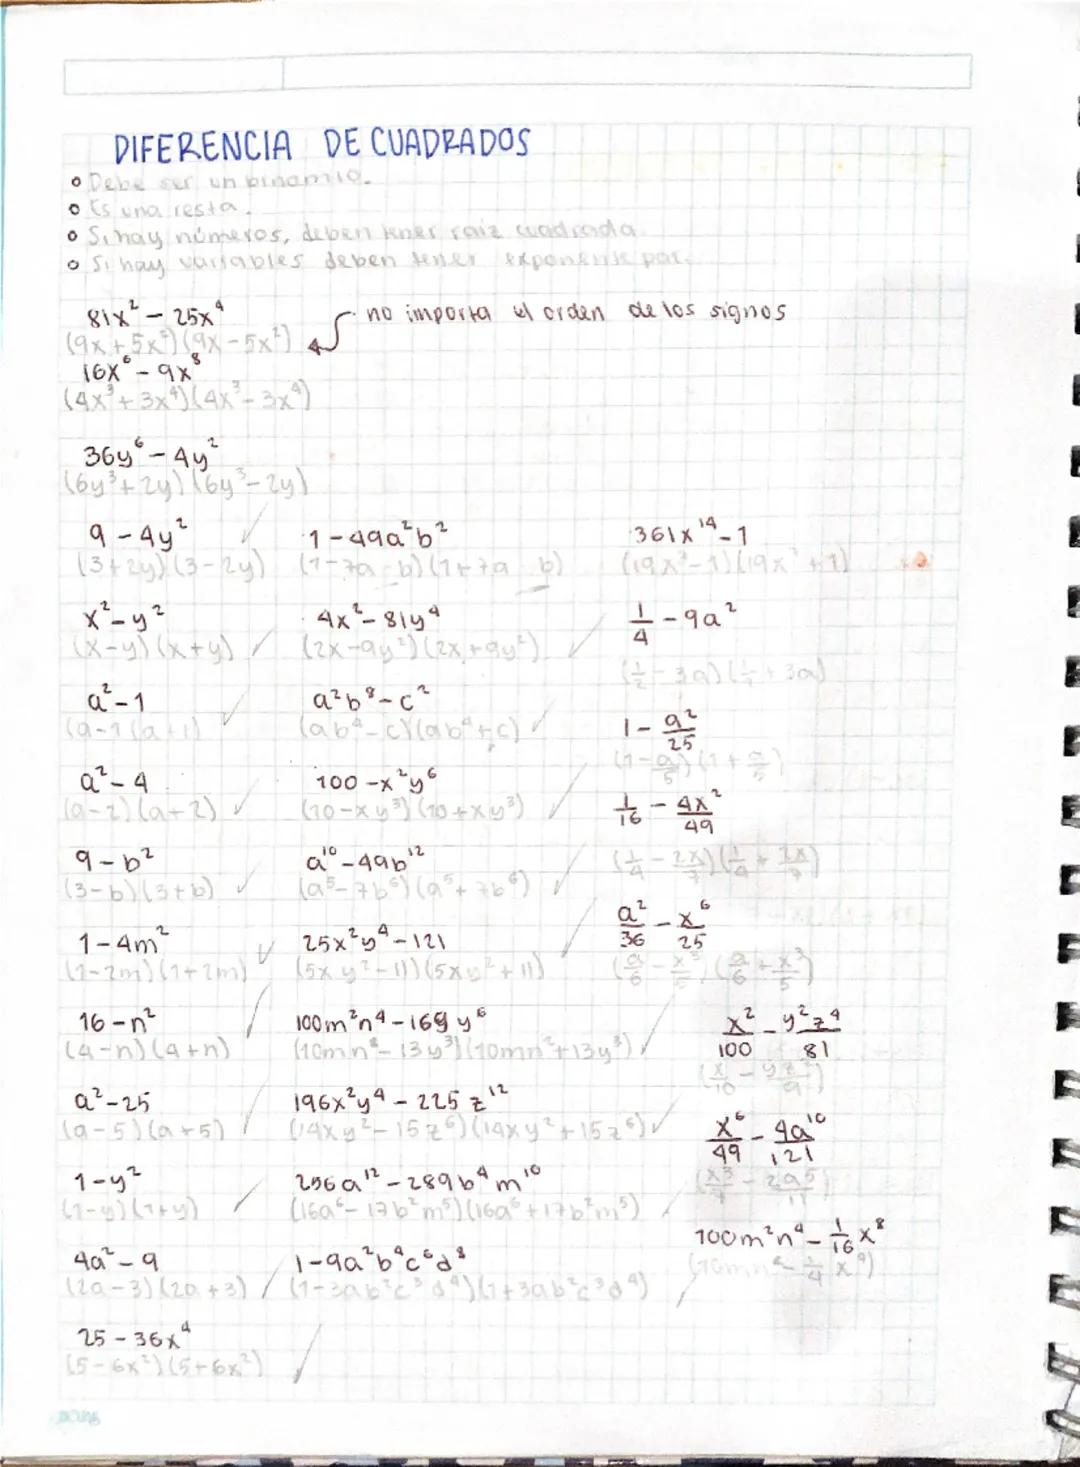 DIFERENCIA DE CUADRADOS
° Debe ser un binomio.
° Es una resta.
° Si hay números, deben tener raiz cuadrada.
° Si hay variables deben tener exponente par.
81x² - 25x⁴
no importa el orden de los signos
(9x + 5x²)(9x - 5x²)
16x⁶ - 9x⁸
(4x³ + 3x⁴)(4x³ - 3x⁴)
36y⁶ - 4y²
(6y³ + 2y)(6y³ - 2y)
9 - 4y²
(3 + 2y)(3 - 2y)
x² - y²
(x - y)(x + y)
a² - 1
(a - 1(a + 1)
a² - 4
(a - 2)(a + 2)
9 - b²
(3 - b)(3 + b)
1 - 4m²
(1 - 2m)(1 + 2m)
16 - n²
(4 - n)(4 + n)
a² - 25
(a - 5)(a + 5)
1 - y²
(1 - y)(1 + y)
4a² - 9
(2a - 3)(2a + 3)
25 - 36x⁴
(5 - 6x²)(5 + 6x²)
1 - 49a²b²
(1 - 7a b)(1 + 7a b)
4x² - 81y⁴
(2x - 9y²)(2x + 9y²)
a²b⁸ - c²
(ab⁴ - c)(ab⁴ + c)
100 - x²y⁶
(10 - xy³)(10 + xy³)
a¹⁰ - 49b¹²
(a⁵ - 7b⁶)(a⁵ + 7b⁶)
25x²y⁴ - 121
(5xy² - 11)(5xy² + 11)
100m²n⁴ - 169y⁶
(10mn² - 13y³)(10mn² + 13y³)
196x²y⁴ - 225z¹²
(14xy² - 15z⁶)(14xy² + 15z⁶)
256a¹² - 289b⁴m¹⁰
(16a⁶ - 17b²m⁵)(16a⁶ + 17b²m⁵)
1 - 9a²b⁴c⁶d⁸
(1 - 3ab²c³d⁴)(1 + 3ab²c³d⁴)
361x¹⁴ - 1
(19x⁷ - 1)(19x⁷ + 1)
1/4 - 9a²
(1/2 - 3a)(1/2 + 3a)
1 - a²/25
(1 - a/5)(1 + a/5)
1/16 - 4x²/49
(1/4 - 2x/7)(1/4 + 2x/7)
a²/36 - x⁶/25
(a/6 - x³/5)(a/6 + x³/5)
x²/100 - y²z⁴/81
(x/10 - yz²/9)
x⁶/49 - 4a¹⁰/121
(x³/7 - 2a⁵/11)
100m²n⁴ - 1/16 x⁸
(10mn² - 1/4 x⁴)